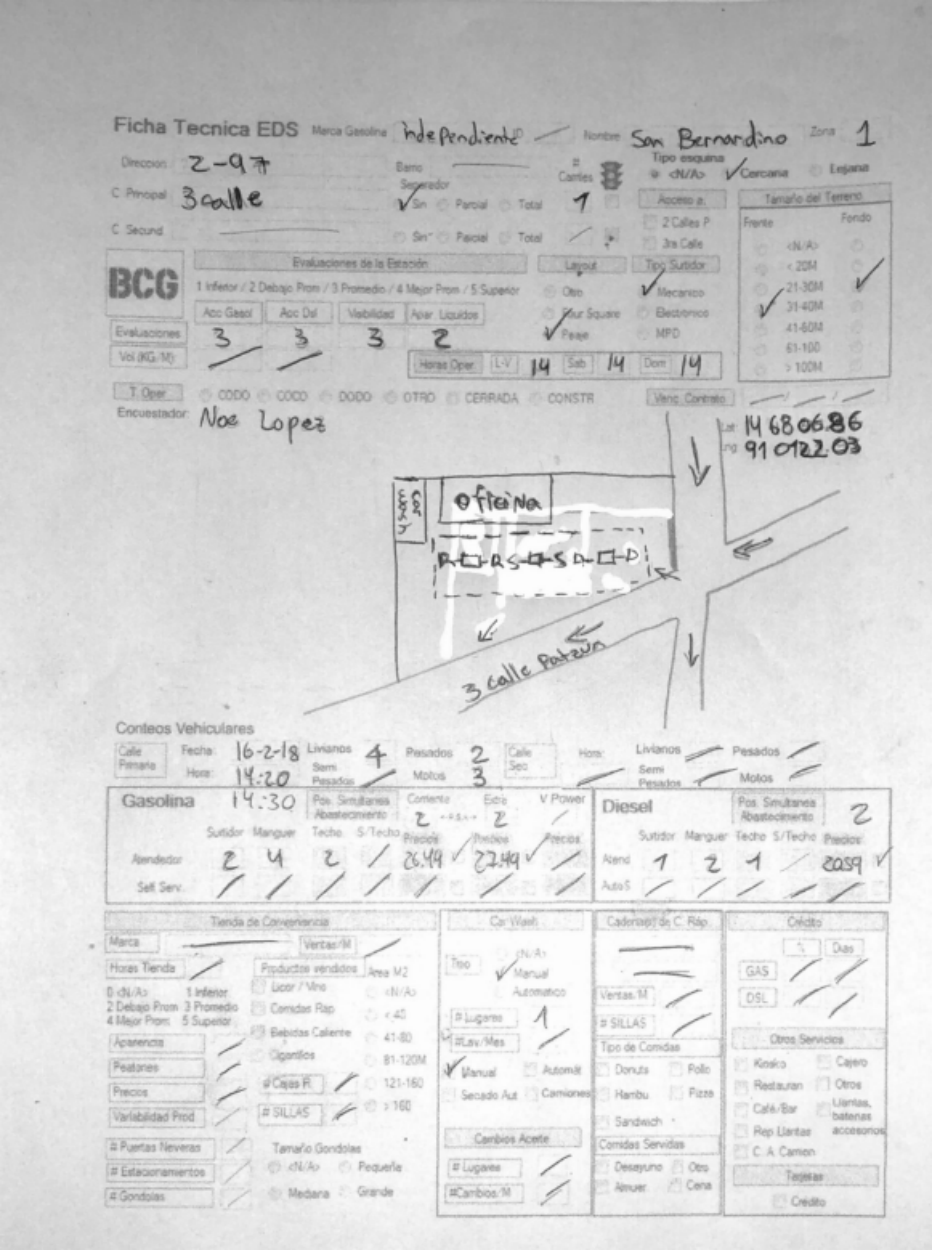 Ficha Tecnica EDS Marca Gasolina independiente Nombre San Bernardino Zona 1
Direccion 2-97 Barrio # Carriles Tipo esquina
<N/A> Cercana Lejana
C Principal 3 calle Separador Sin Parcial Total 1 Acceso a. Tamaño del Terreno
2 Calles P Frente Fondo
C Secund Sin Parcial Total 3ra Calle <N/A>
BCG Evaluaciones de la Estación Layout Tipo Surtidor < 20M
1 Inferior / 2 Debajo Prom / 3 Promedio / 4 Mejor Prom / 5 Superior Otro Mecanico 21-30M
Acc Gasol Acc Dsl Visibilidad Apar. Liquidos Four Square Electronico 31-40M
Evaluaciones 3 3 3 2 Peaje MPD 41-60M
Vol (KG/M) Horas Oper. L-V 14 Sab 14 Dom 14 61-100
> 100M
T. Oper CODO COCO DODO OTRO CERRADA CONSTR Venc. Contrato
Encuestador: Noe Lopez Lat 14 680686
Lng 91 012203
oficina
R R S S D D
3 calle Patzún
Conteos Vehiculares
Calle Primaria Fecha: 16-2-18 Livianos 4 Pesados 2 Calle Sec Hora: Livianos Pesados
Hora: 14:20 Semi Pesados Motos 3 Semi Pesados Motos
Gasolina 14:30 Pos. Simultanea Abastecimiento Corriente 2 Extra 2 V Power Diesel Pos. Simultanea Abastecimiento 2
Surtidor Manguer Techo S/Techo Precios Precios Precios Surtidor Manguer Techo S/Techo Precios
Atendedor 2 4 2 26.49 27.49 Atend 1 2 1 20.59
Self Serv. Auto S
Tienda de Conveniencia Car Wash Cadena(s) de C. Ráp Crédito
Marca Ventas/M % Dias
Horas Tienda Productos vendidos Area M2 Tipo <N/A> GAS
0 <N/A> 1 Inferior Licor / Vino <N/A> Manual
2 Debajo Prom 3 Promedio Comidas Rap < 40 Automatico Ventas/M DSL
4 Mejor Prom 5 Superior Bebidas Caliente 41-80 # Lugares 1 # SILLAS
Apariencia Cigarrillos 81-120M #Lav/Mes Tipo de Comidas Otros Servicios
Peatones # Cajas R. 121-160 Manual Automát Donuts Pollo Kosko Cajero
Precios # SILLAS > 160 Secado Aut Camiones Hambu Pizza Restauran Otros
Variabilidad Prod Sandwich Café/Bar Llantas, baterias accesorios
# Puertas Neveras Tamaño Gondolas Cambios Aceite Comidas Servidas Rep Llantas
# Estacionamientos <N/A> Pequeña # Lugares Desayuno Otra C. A. Camion
# Gondolas Mediana Grande #Cambios/M Almuer Cena Tarjetas
Credito